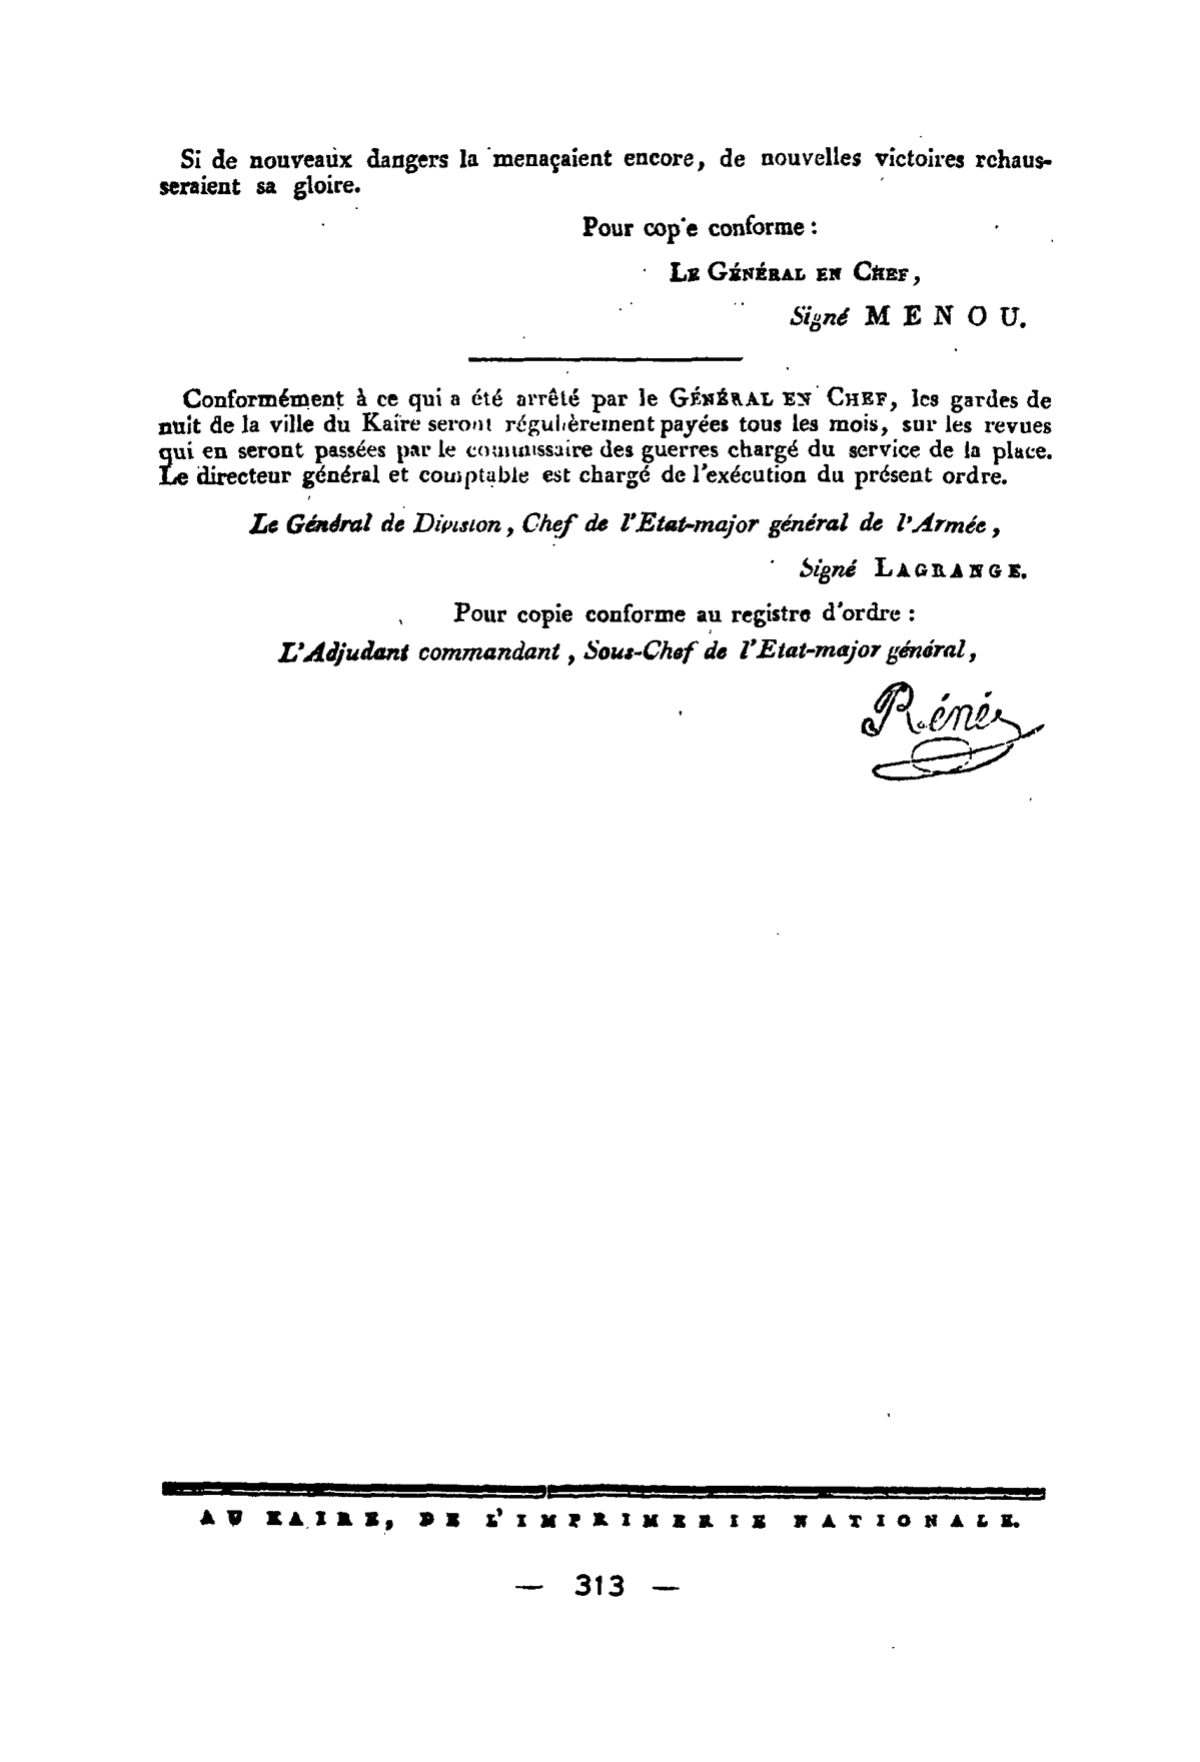 Si de nouveaux dangers la menaçaient encore, de nouvelles victoires rehaus-
seraient sa gloire.
Pour copie conforme :
LE GÉNÉRAL EN CHEF,
Signé MENOU.
Conformément à ce qui a été arrêté par le GÉNÉRAL EN CHEF, les gardes de
nuit de la ville du Kaire seront régulièrement payées tous les mois, sur les revues
qui en seront passées par le commissaire des guerres chargé du service de la place.
Le directeur général et comptable est chargé de l'exécution du présent ordre.
Le Général de Division, Chef de l'Etat-major général de l'Armée,
Signé LAGRANGE.
Pour copie conforme au registre d'ordre :
L'Adjudant commandant, Sous-Chef de l'Etat-major général,
Réné
AU KAIRE, DE L'IMPRIMERIE NATIONALE.
— 313 —